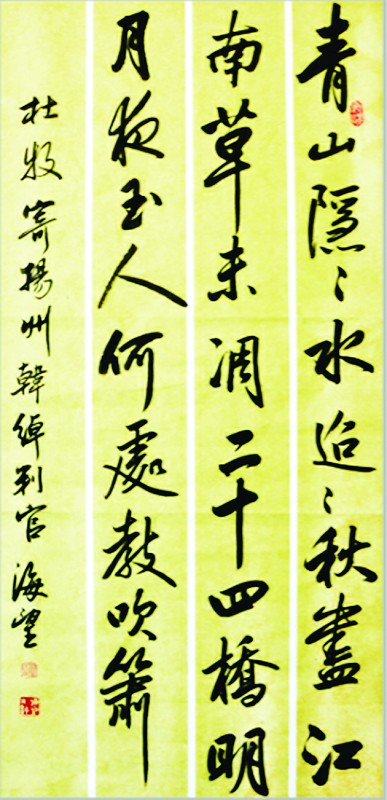 青山隱〻水迢〻秋盡江
南草未凋二十四橋明
月夜玉人何處教吹簫
杜牧寄揚州韓綽判官 海望